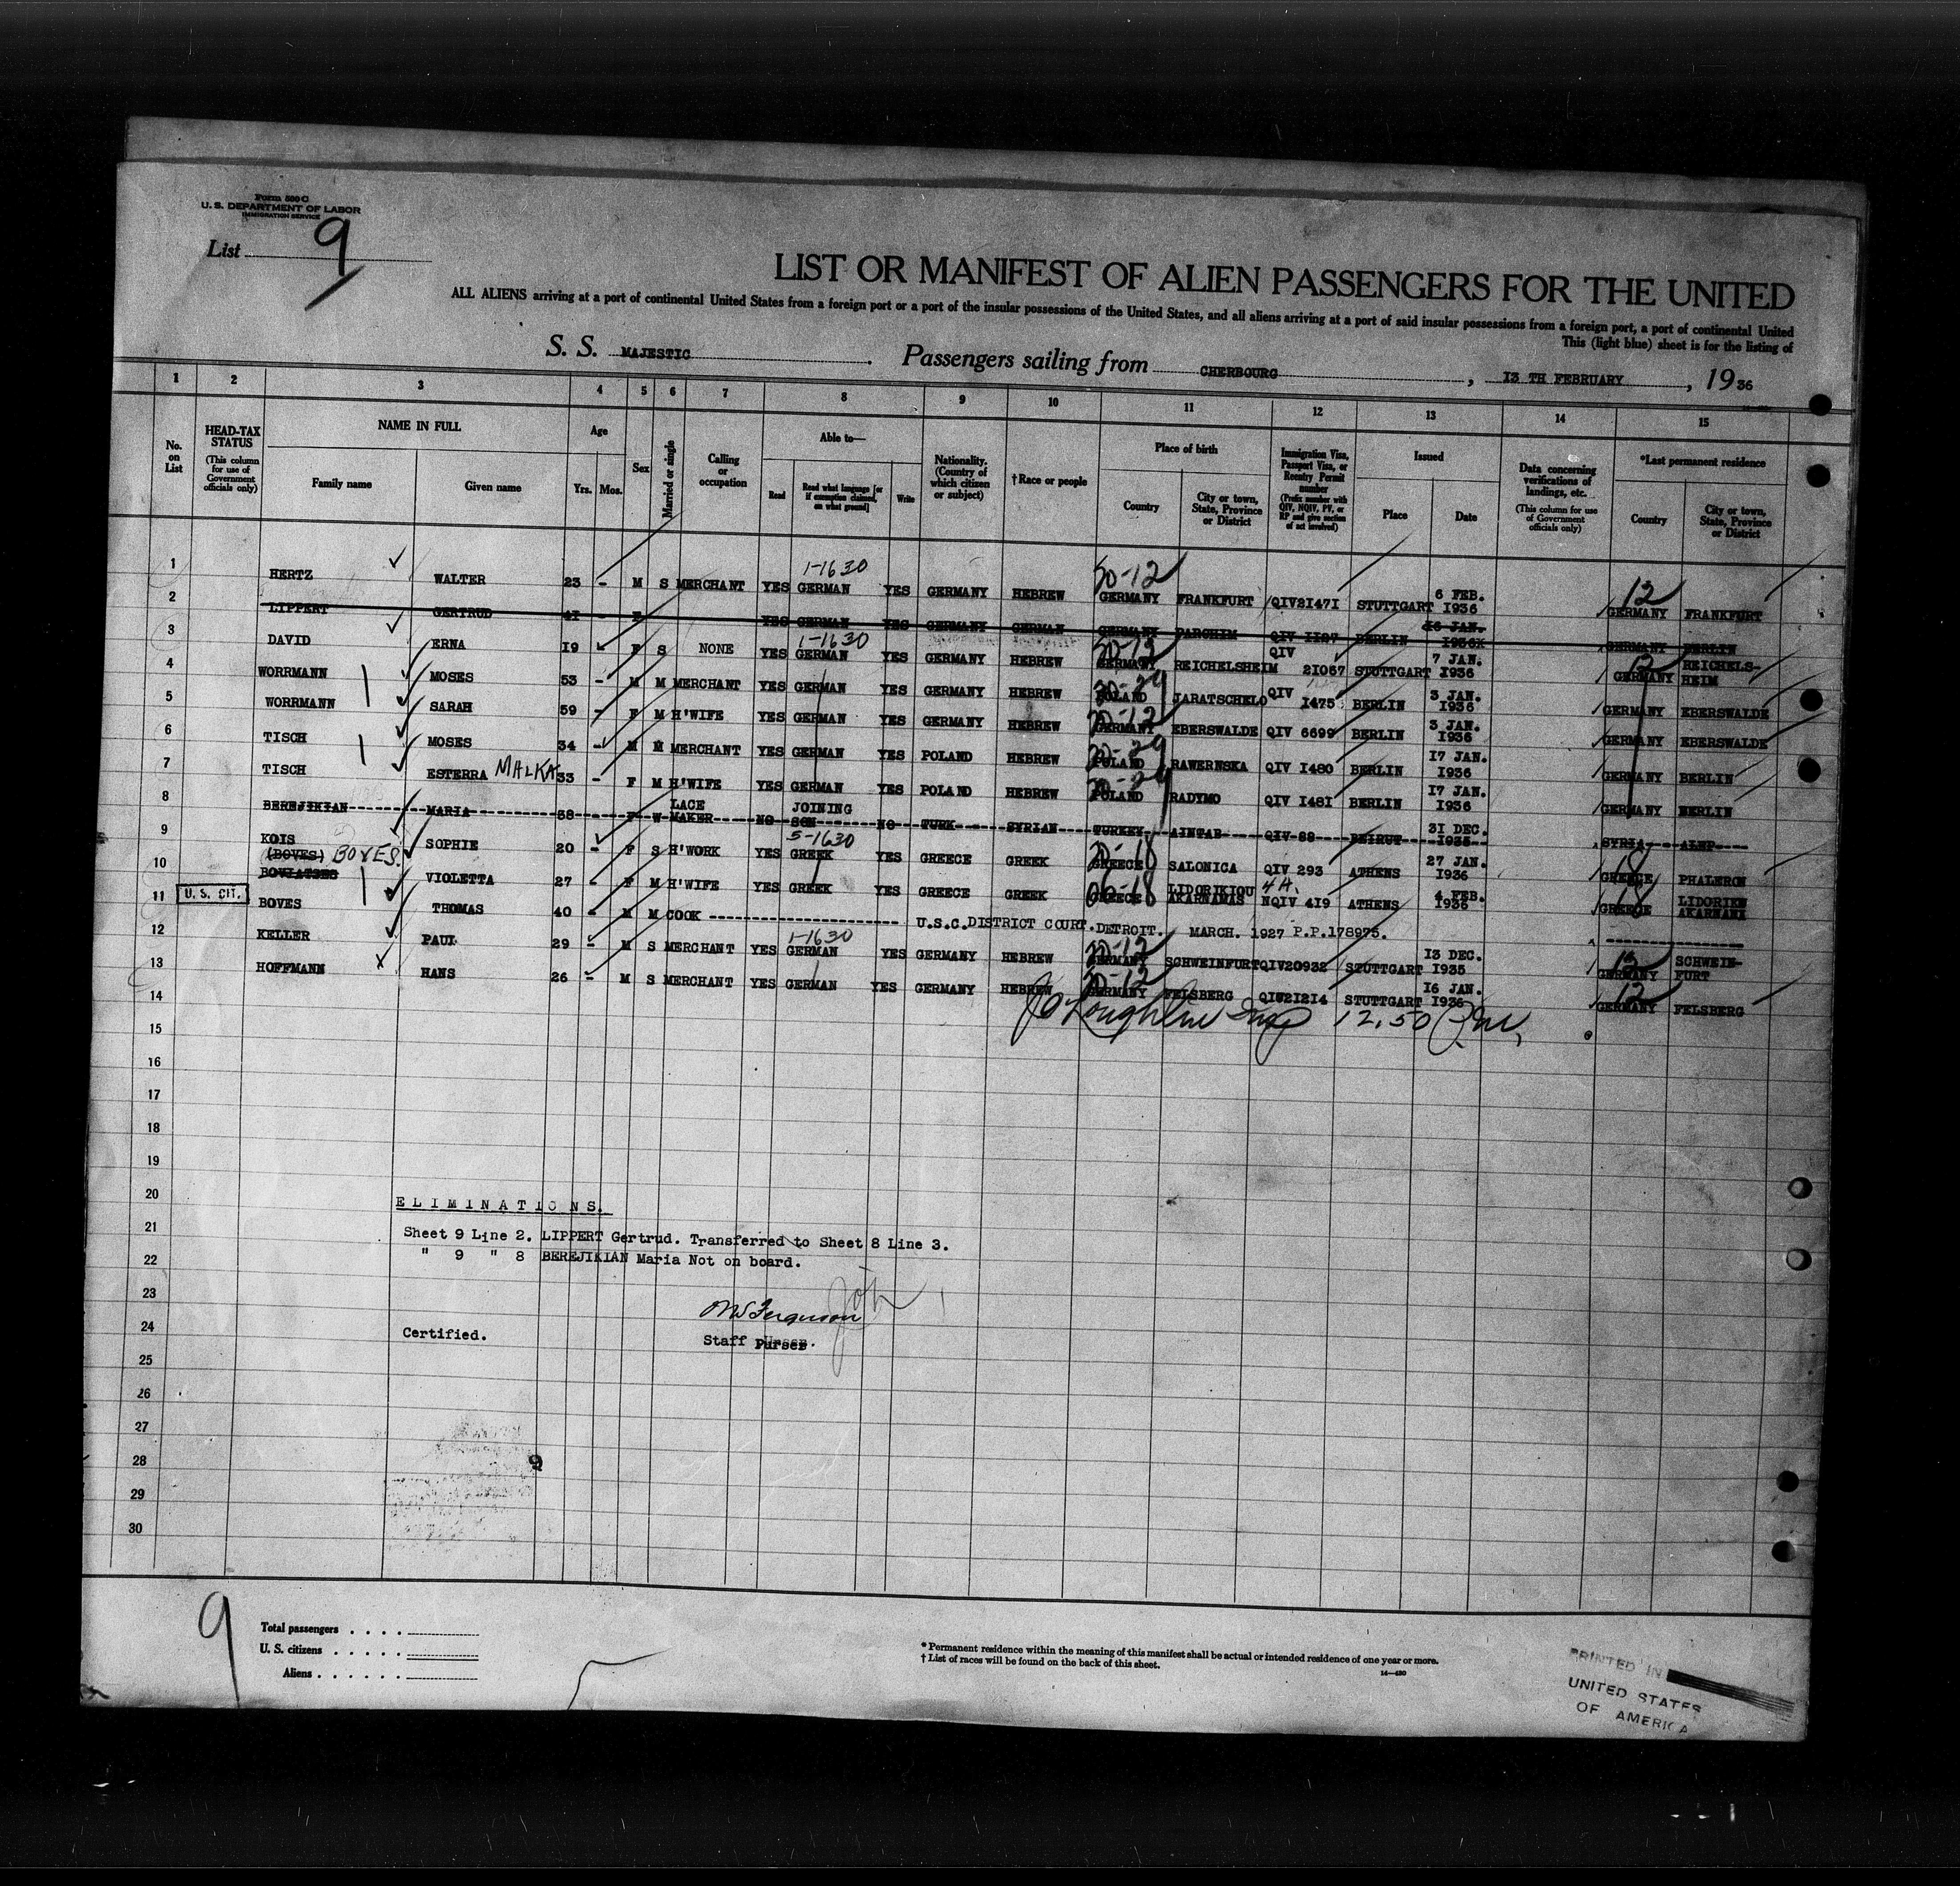 Form 500 C
U. S. DEPARTMENT OF LABOR
IMMIGRATION SERVICE
List 9
LIST OR MANIFEST OF ALIEN PASSENGERS FOR THE UNITED
ALL ALIENS arriving at a port of continental United States from a foreign port or a port of the insular possessions of the United States, and all aliens arriving at a port of said insular possessions from a foreign port, a port of continental United
This (light blue) sheet is for the listing of
S. S. MAJESTIC. Passengers sailing from CHERBOURG, 13 TH FEBRUARY, 1936
1 2 3 4 5 6 7 8 9 10 11 12 13 14 15
No. on List
HEAD-TAX STATUS (This column for use of Government officials only)
NAME IN FULL
Family name Given name
Age
Yrs. Mos.
Sex
Married or single
Calling or occupation
Able to—
Read Read what language [or if exemption claimed, on what ground] Write
Nationality. (Country of which citizen or subject)
†Race or people
Place of birth
Country City or town, State, Province or District
Immigration Visa, Passport Visa, or Reentry Permit number (Prefix number with QIV, NQIV, PV, or RP and give section of act involved)
Issued
Place Date
Data concerning verifications of landings, etc. (This column for use of Government officials only)
*Last permanent residence
Country City or town, State, Province or District
1 HERTZ WALTER 23 - M S MERCHANT YES 1-1630 GERMAN YES GERMANY HEBREW 30-12 GERMANY FRANKFURT QIV21471 STUTTGART 6 FEB. 1936 12 GERMANY FRANKFURT
2 LIPPERT GERTRUD 41 F YES GERMAN YES GERMANY GERMAN GERMANY PARCHIM QIV 1197 BERLIN 16 JAN. 1936 GERMANY BERLIN
3 DAVID ERNA 19 - F S NONE YES 1-1630 GERMAN YES GERMANY HEBREW 30-12 GERMANY REICHELSHEIM QIV 21067 STUTTGART 7 JAN. 1936 12 GERMANY REICHELS-HEIM
4 WORRMANN MOSES 53 - M M MERCHANT YES GERMAN YES GERMANY HEBREW 30-29 POLAND JARATSCHELO QIV 1475 BERLIN 3 JAN. 1936 GERMANY EBERSWALDE
5 WORRMANN SARAH 59 F M H'WIFE YES GERMAN YES GERMANY HEBREW 30-12 GERMANY EBERSWALDE QIV 6699 BERLIN 3 JAN. 1936 GERMANY EBERSWALDE
6 TISCH MOSES 34 - M M MERCHANT YES GERMAN YES POLAND HEBREW 30-29 POLAND RAWERNSKA QIV 1480 BERLIN 17 JAN. 1936 GERMANY BERLIN
7 TISCH ESTERRA MALKA 33 - F M H'WIFE YES GERMAN YES POLAND HEBREW 30-29 POLAND RADYMO QIV 1481 BERLIN 17 JAN. 1936 GERMANY BERLIN
8 BEREJIKIAN MARIA 58 F W LACE MAKER NO JOINING SON NO TURK SYRIAN TURKEY AINTAB QIV 88 BEIRUT 31 DEC. 1935 SYRIA ALEP
9 KOIS (BOVES) BOVES. SOPHIE 20 - F S H'WORK YES 5-1630 GREEK YES GREECE GREEK 20-18 GREECE SALONICA QIV 293 ATHENS 27 JAN. 1936 18 GREECE PHALERON
10 BOVIATSES VIOLETTA 27 - F M H'WIFE YES GREEK YES GREECE GREEK 06-18 GREECE LIDORIKIOU AKARNAMAS 4A. NQIV 419 ATHENS 4 FEB. 1936 18 GREECE LIDORIKN AKARNANI
11 U. S. CIT. BOVES THOMAS 40 - M M COOK U.S.C. DISTRICT COURT. DETROIT. MARCH. 1927 P.P.178975.
12 KELLER PAUL 29 - M S MERCHANT YES 1-1630 GERMAN YES GERMANY HEBREW 30-12 GERMANY SCHWEINFURT QIV20932 STUTTGART 13 DEC. 1935 12 GERMANY SCHWEIN-FURT
13 HOFFMANN HANS 26 - M S MERCHANT YES GERMAN YES GERMANY HEBREW 30-12 GERMANY FELSBERG QIV21214 STUTTGART 16 JAN. 1936 12 GERMANY FELSBERG
14 J O'Loughlin Insp 12.50 P.M.
15
16
17
18
19
20 ELIMINATIONS.
21 Sheet 9 Line 2. LIPPERT Gertrud. Transferred to Sheet 8 Line 3.
22 " 9 " 8 BEREJIKIAN Maria Not on board.
23
24 Certified. Ferguson
Staff Purser.
25
26
27
28 9
29
30
9
Total passengers
U. S. citizens
Aliens
* Permanent residence within the meaning of this manifest shall be actual or intended residence of one year or more.
† List of races will be found on the back of this sheet.
14—430
PRINTED IN
UNITED STATES
OF AMERICA